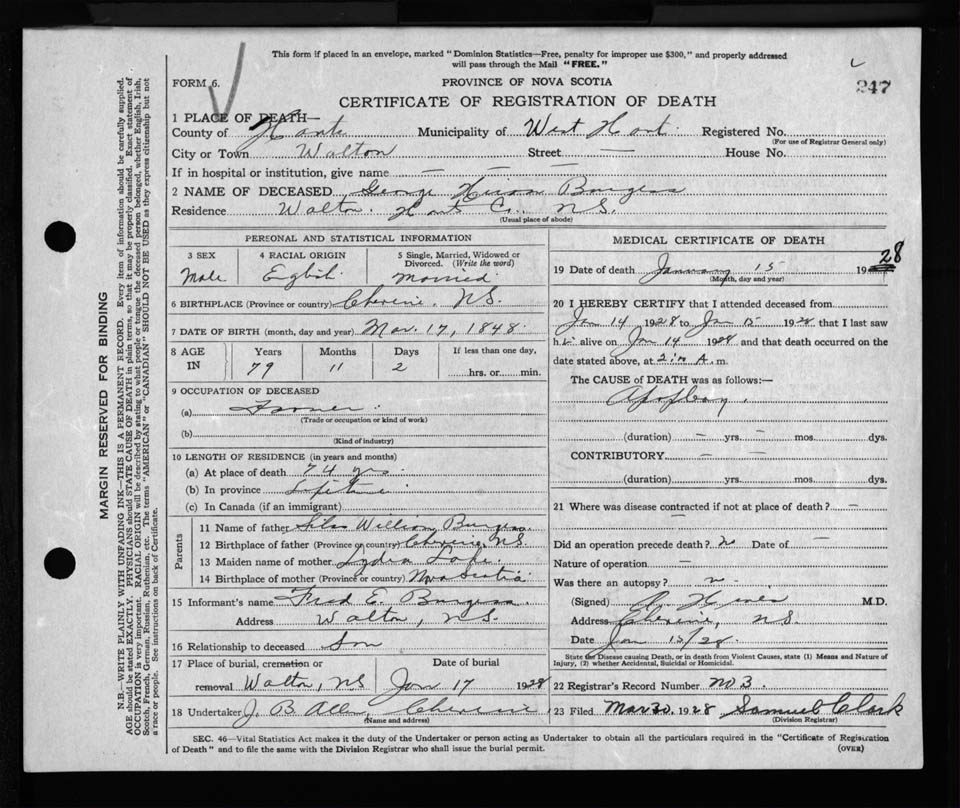 This form if placed in an envelope, marked "Dominion Statistics—Free, penalty for improper use $300," and properly addressed
will pass through the Mail "FREE."
FORM 6.
PROVINCE OF NOVA SCOTIA
247
CERTIFICATE OF REGISTRATION OF DEATH
1 PLACE OF DEATH—
County of Hants Municipality of West Hants Registered No.
(For use of Registrar General only)
City or Town Walton Street — House No.
If in hospital or institution, give name — — —
2 NAME OF DECEASED George Burgess
Residence Walton. Hants Co., N.S.
(Usual place of abode)
PERSONAL AND STATISTICAL INFORMATION
3 SEX
Male
4 RACIAL ORIGIN
English
5 Single, Married, Widowed or
Divorced. (Write the word)
Married
6 BIRTHPLACE (Province or country) Cheverie. N.S.
7 DATE OF BIRTH (month, day and year) Mar. 17, 1848.
8 AGE
IN
Years
79
Months
11
Days
2
If less than one day,
hrs. or min.
9 OCCUPATION OF DECEASED
(a) Farmer.
(Trade or occupation or kind of work)
(b)
(Kind of industry)
10 LENGTH OF RESIDENCE (in years and months)
(a) At place of death 74 yrs.
(b) In province Lifetime
(c) In Canada (if an immigrant)
Parents
11 Name of father Silas William Burgess
12 Birthplace of father (Province or country) Cheverie N.S.
13 Maiden name of mother Lydia
14 Birthplace of mother (Province or country) Nova Scotia
15 Informant's name Fred E. Burgess.
Address Walton, N.S.
16 Relationship to deceased Son
17 Place of burial, cremation or
removal Walton, NS
Date of burial
Jan 17 1928
18 Undertaker J. B Allen, Cheverie
(Name and address)
MEDICAL CERTIFICATE OF DEATH
19 Date of death January 15 1928
(Month, day and year)
20 I HEREBY CERTIFY that I attended deceased from
Jan 14 1928 to Jan 15 1928 that I last saw
him alive on Jan 14 1928 and that death occurred on the
date stated above, at A. m.
The CAUSE OF DEATH was as follows:—
Apoplexy.
(duration) — yrs. — mos. dys.
CONTRIBUTORY — —
(duration) yrs. mos. dys.
21 Where was disease contracted if not at place of death? —
Did an operation precede death? no Date of —
Nature of operation —
Was there an autopsy? n.
(Signed) M.D.
Address Cheverie, N.S.
Date Jan 15/28.
State the Disease causing Death, or in death from Violent Causes, state (1) Means and Nature of
Injury, (2) whether Accidental, Suicidal or Homicidal.
22 Registrar's Record Number No 3.
23 Filed Mar 30, 1928 Samuel Clark
(Division Registrar)
SEC. 46—Vital Statistics Act makes it the duty of the Undertaker or person acting as Undertaker to obtain all the particulars required in the "Certificate of Registration
of Death" and to file the same with the Division Registrar who shall issue the burial permit.
(OVER)
MARGIN RESERVED FOR BINDING
N.B.—WRITE PLAINLY WITH UNFADING INK—THIS IS A PERMANENT RECORD. Every item of information should be carefully supplied.
AGE should be stated EXACTLY. PHYSICIANS should STATE CAUSE OF DEATH in plain terms, so that it may be properly classified. Exact statement of
OCCUPATION is very important. RACIAL ORIGIN will be described by stating to what people or tongue the deceased person belonged, whether English, Irish,
Scotch, French, German, Russian, Ruthenian, etc. The terms "AMERICAN" or "CANADIAN" SHOULD NOT BE USED as they express citizenship but not
a race or people. See instructions on back of Certificate.